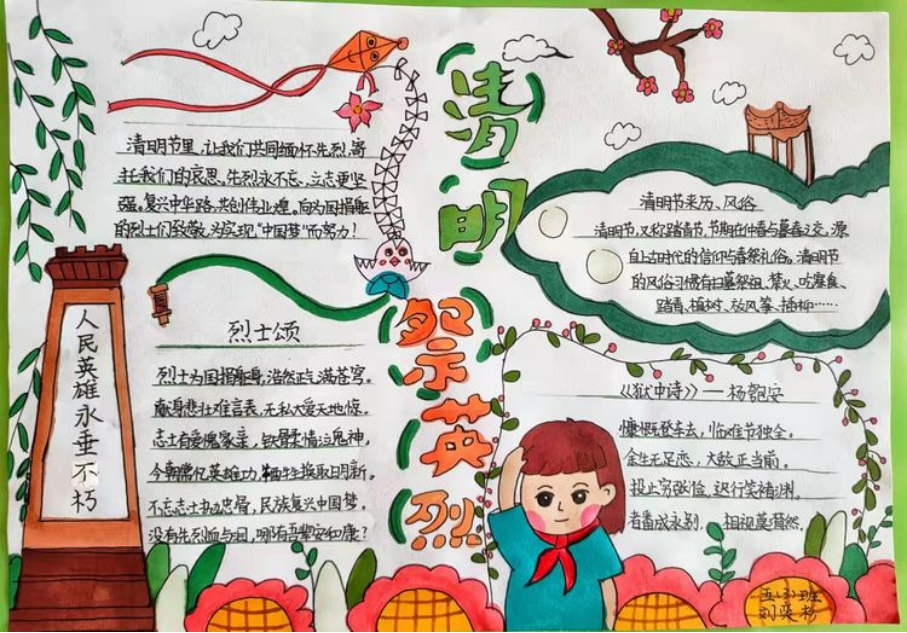 清明祭英烈
清明节里,让我们共同缅怀先烈,寄
托我们的哀思。先烈永不忘、立志更坚
强。复兴中华路、共创伟业煌。向为国捐躯
的烈士们致敬,为实现“中国梦”而努力!
清明节来历、风俗
清明节,又称踏青节,节期在仲春与暮春之交。源
自上古时代的信仰与春祭礼俗。清明节
的风俗习惯有扫墓祭祖、禁火、吃寒食、
踏青、植树、放风筝、插柳……
人民英雄永垂不朽
烈士颂
烈士为国捐躯身,浩然正气满苍穹。
献身悲壮难言表,无私大爱天地惊。
志士有爱傀家亲,铁骨柔情泣鬼神,
今朝常忆英雄力,牺牲换取日月新。
不忘志士执忠骨,民族复兴中国梦,
没有先烈血与泪,哪有吾辈安和康?
《狱中诗》——杨匏安
慷慨登车去,临难节独全。
余生无足恋,大敌正当前。
投止穷张俭,迟行笑褚渊。
者番成永别,相视莫潸然。
五(3)班